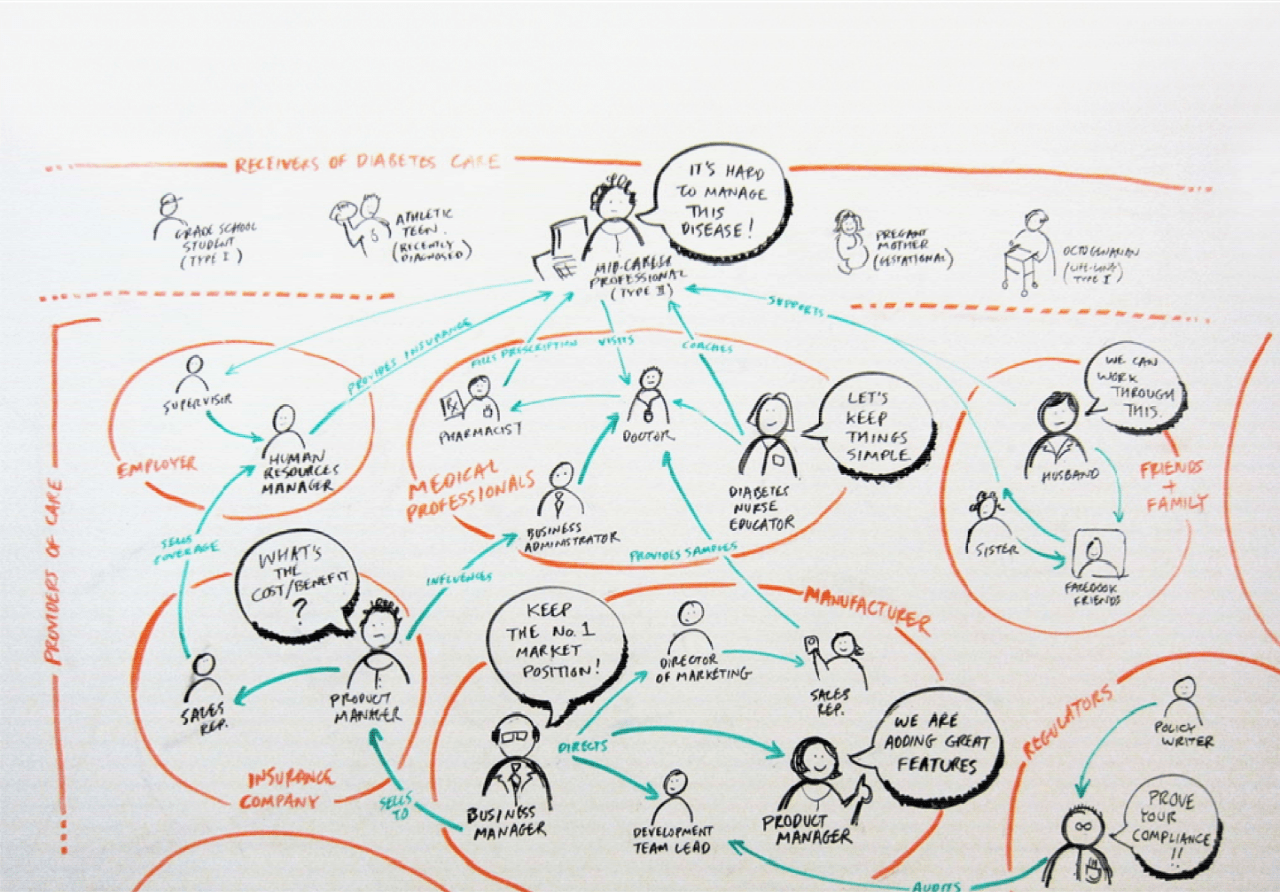 RECEIVERS OF DIABETES CARE
IT'S HARD
TO MANAGE
THIS
DISEASE!
GRADE SCHOOL
STUDENT
(TYPE I)
ATHLETIC
TEEN.
(RECENTLY
DIAGNOSED)
MID-CAREER
PROFESSIONAL
(TYPE II)
PREGANT
MOTHER
(GESTATIONAL)
OCTOGENARIAN
(LIFE-LONG
TYPE I)
PROVIDERS OF CARE
SUPERVISOR
HUMAN
RESOURCES
MANAGER
EMPLOYER
PROVIDES INSURANCE
FILLS PRESCRIPTION
VISITS
COACHES
SUPPORTS
Rx
PHARMACIST
DOCTOR
LET'S
KEEP
THINGS
SIMPLE.
DIABETES
NURSE
EDUCATOR
MEDICAL
PROFESSIONALS
BUSINESS
ADMINISTRATOR
WE CAN
WORK
THROUGH
THIS.
HUSBAND
SISTER
FACEBOOK
FRIENDS
FRIENDS
+
FAMILY
SELLS
COVERAGE
WHAT'S
THE
COST/BENEFIT
?
INFLUENCES
PROVIDES SAMPLES
SALES
REP.
PRODUCT
MANAGER
INSURANCE
COMPANY
SELLS
TO
KEEP
THE No. 1
MARKET
POSITION!
MANUFACTURER
DIRECTOR
OF MARKETING
SALES
REP.
DIRECTS
BUSINESS
MANAGER
DEVELOPMENT
TEAM LEAD
PRODUCT
MANAGER
WE ARE
ADDING GREAT
FEATURES
REGULATORS
POLICY
WRITER
PROVE
YOUR
COMPLIANCE
!!
AUDITS